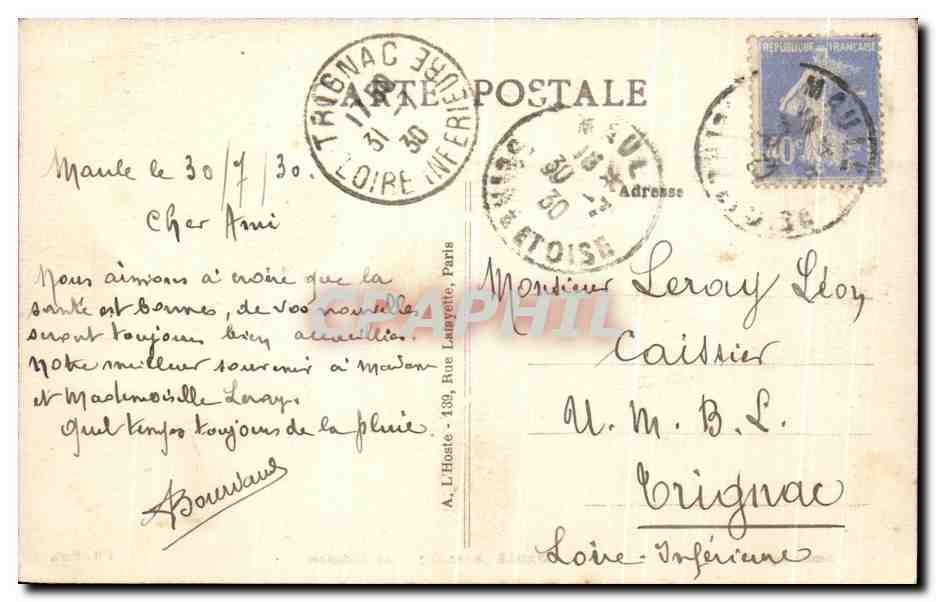 CARTE POSTALE
TRIGNAC
LOIRE INFERIEURE
31 30
MAULE
18 *
30 -7
30
SEINE & ET OISE
REPUBLIQUE FRANCAISE
MAULE
Adresse
Maule le 30/7/30.
Cher Ami
Nous aimions à croire que la
santé est bonnes, de vos nouvelles
seront toujours bien accueillies.
Notre meilleur souvenir à Madam
et Mademoiselle Leray.
Quel temps toujours de la pluie.
A. L'Hoste - 139, Rue Lafayette, Paris
Monsieur Leray Léon
Caissier
U. M. B. L.
Trignac
Loire-Inférieure
CPAPHIL